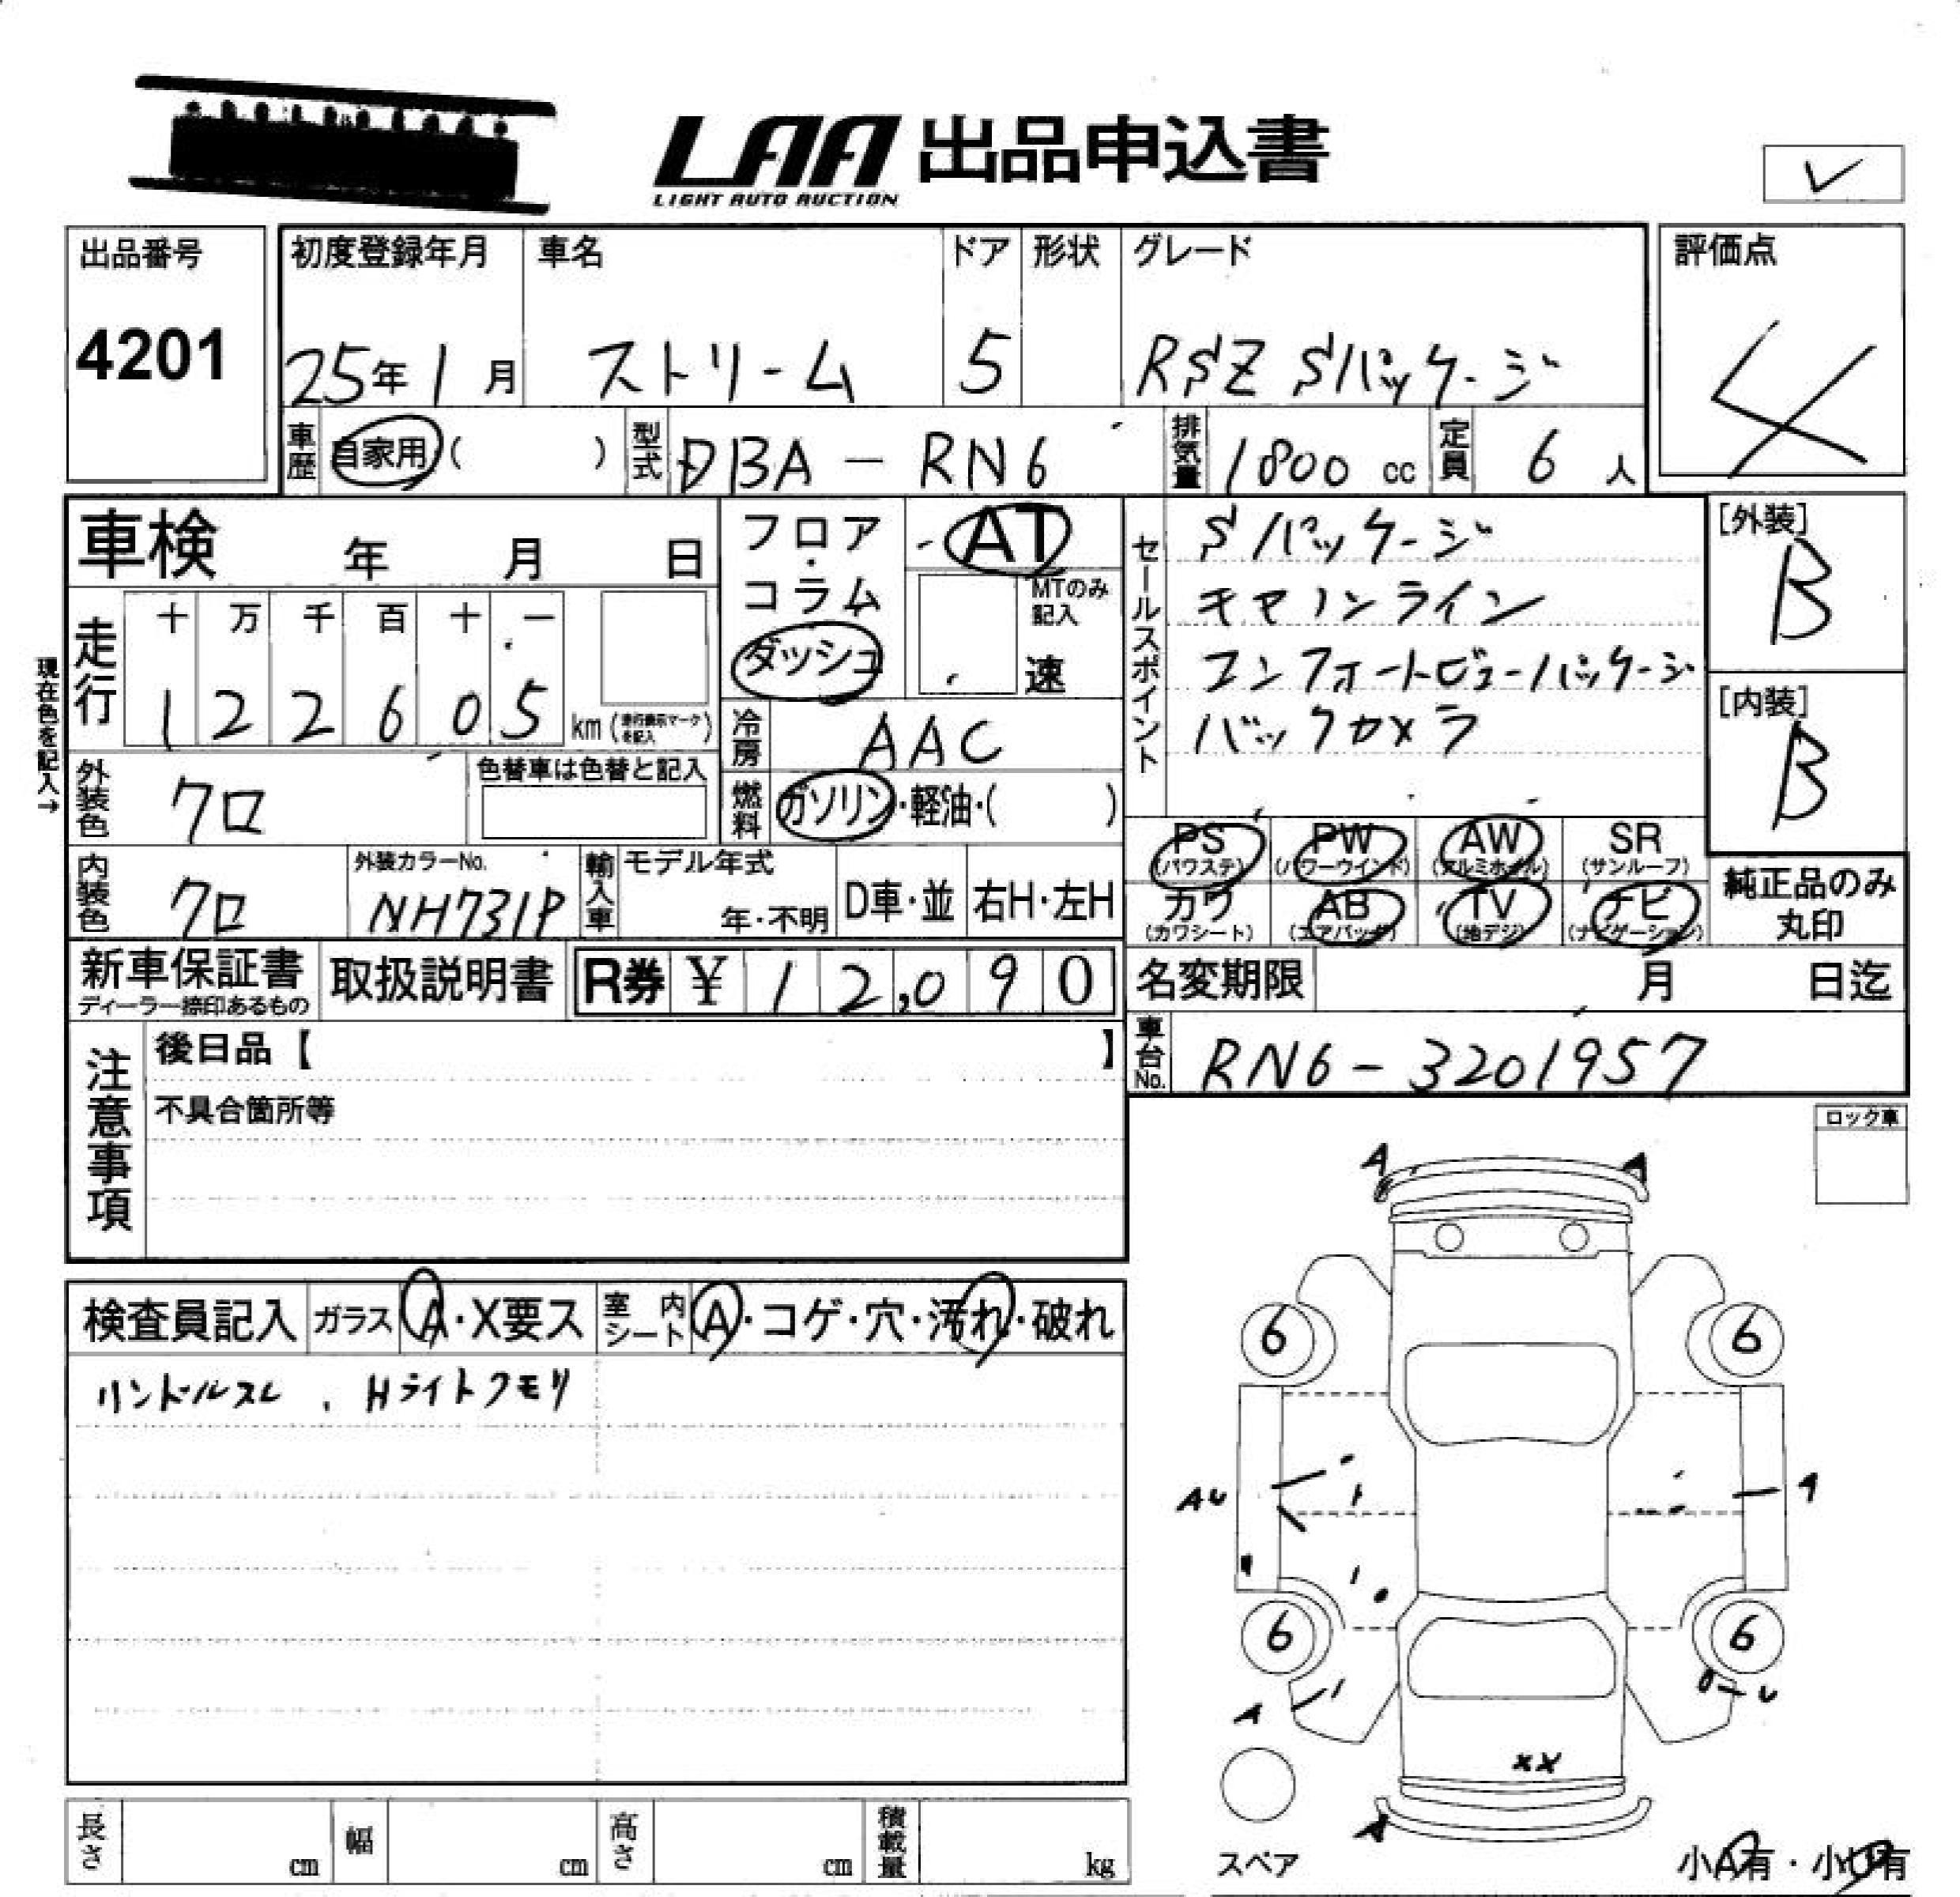 LAA 出品申込書
LIGHT AUTO AUCTION
✓
出品番号
4201
初度登録年月 車名 ドア 形状 グレード
25年1月 ストリーム 5 RSZ Sパッケージ
評価点
4
車歴 自家用( ) 型式 DBA-RN6 排気量 1800cc 定員 6人
車検 年 月 日
フロア・コラム
ダッシュ
AT
MTのみ記入
速
走行 十 万 千 百 十 一
122605 km (走行表示マークを記入)
現在色を記入→
冷房 AAC
外装色 クロ 色替車は色替と記入
燃料 ガソリン・軽油・( )
内装色 クロ 外装カラーNo. NH731P
輸入車 モデル年式 年・不明 D車・並 右H・左H
セールスポイント
Sパッケージ
キャノンライン
コンフォートビューパッケージ
バックカメラ
[外装]
B
[内装]
B
PS (パワステ) PW (パワーウインド) AW (アルミホイル) SR (サンルーフ)
カワ (カワシート) AB (エアバック) TV (地デジ) ナビ (ナビゲーション)
純正品のみ丸印
新車保証書 ディーラー捺印あるもの 取扱説明書 R券 ¥12,090
名変期限 月 日迄
車台No. RN6-3201957
注意事項
後日品【 】
不具合箇所等
ロック車
検査員記入 ガラス A・X要ス 室内シート A・コゲ・穴・汚れ・破れ
ハンドルスレ、Hライトクモリ
A A
6 6
AU
A
6 6
A U
XX
A
スペア
小A有・小U有
長さ cm 幅 cm 高さ cm 積載量 kg